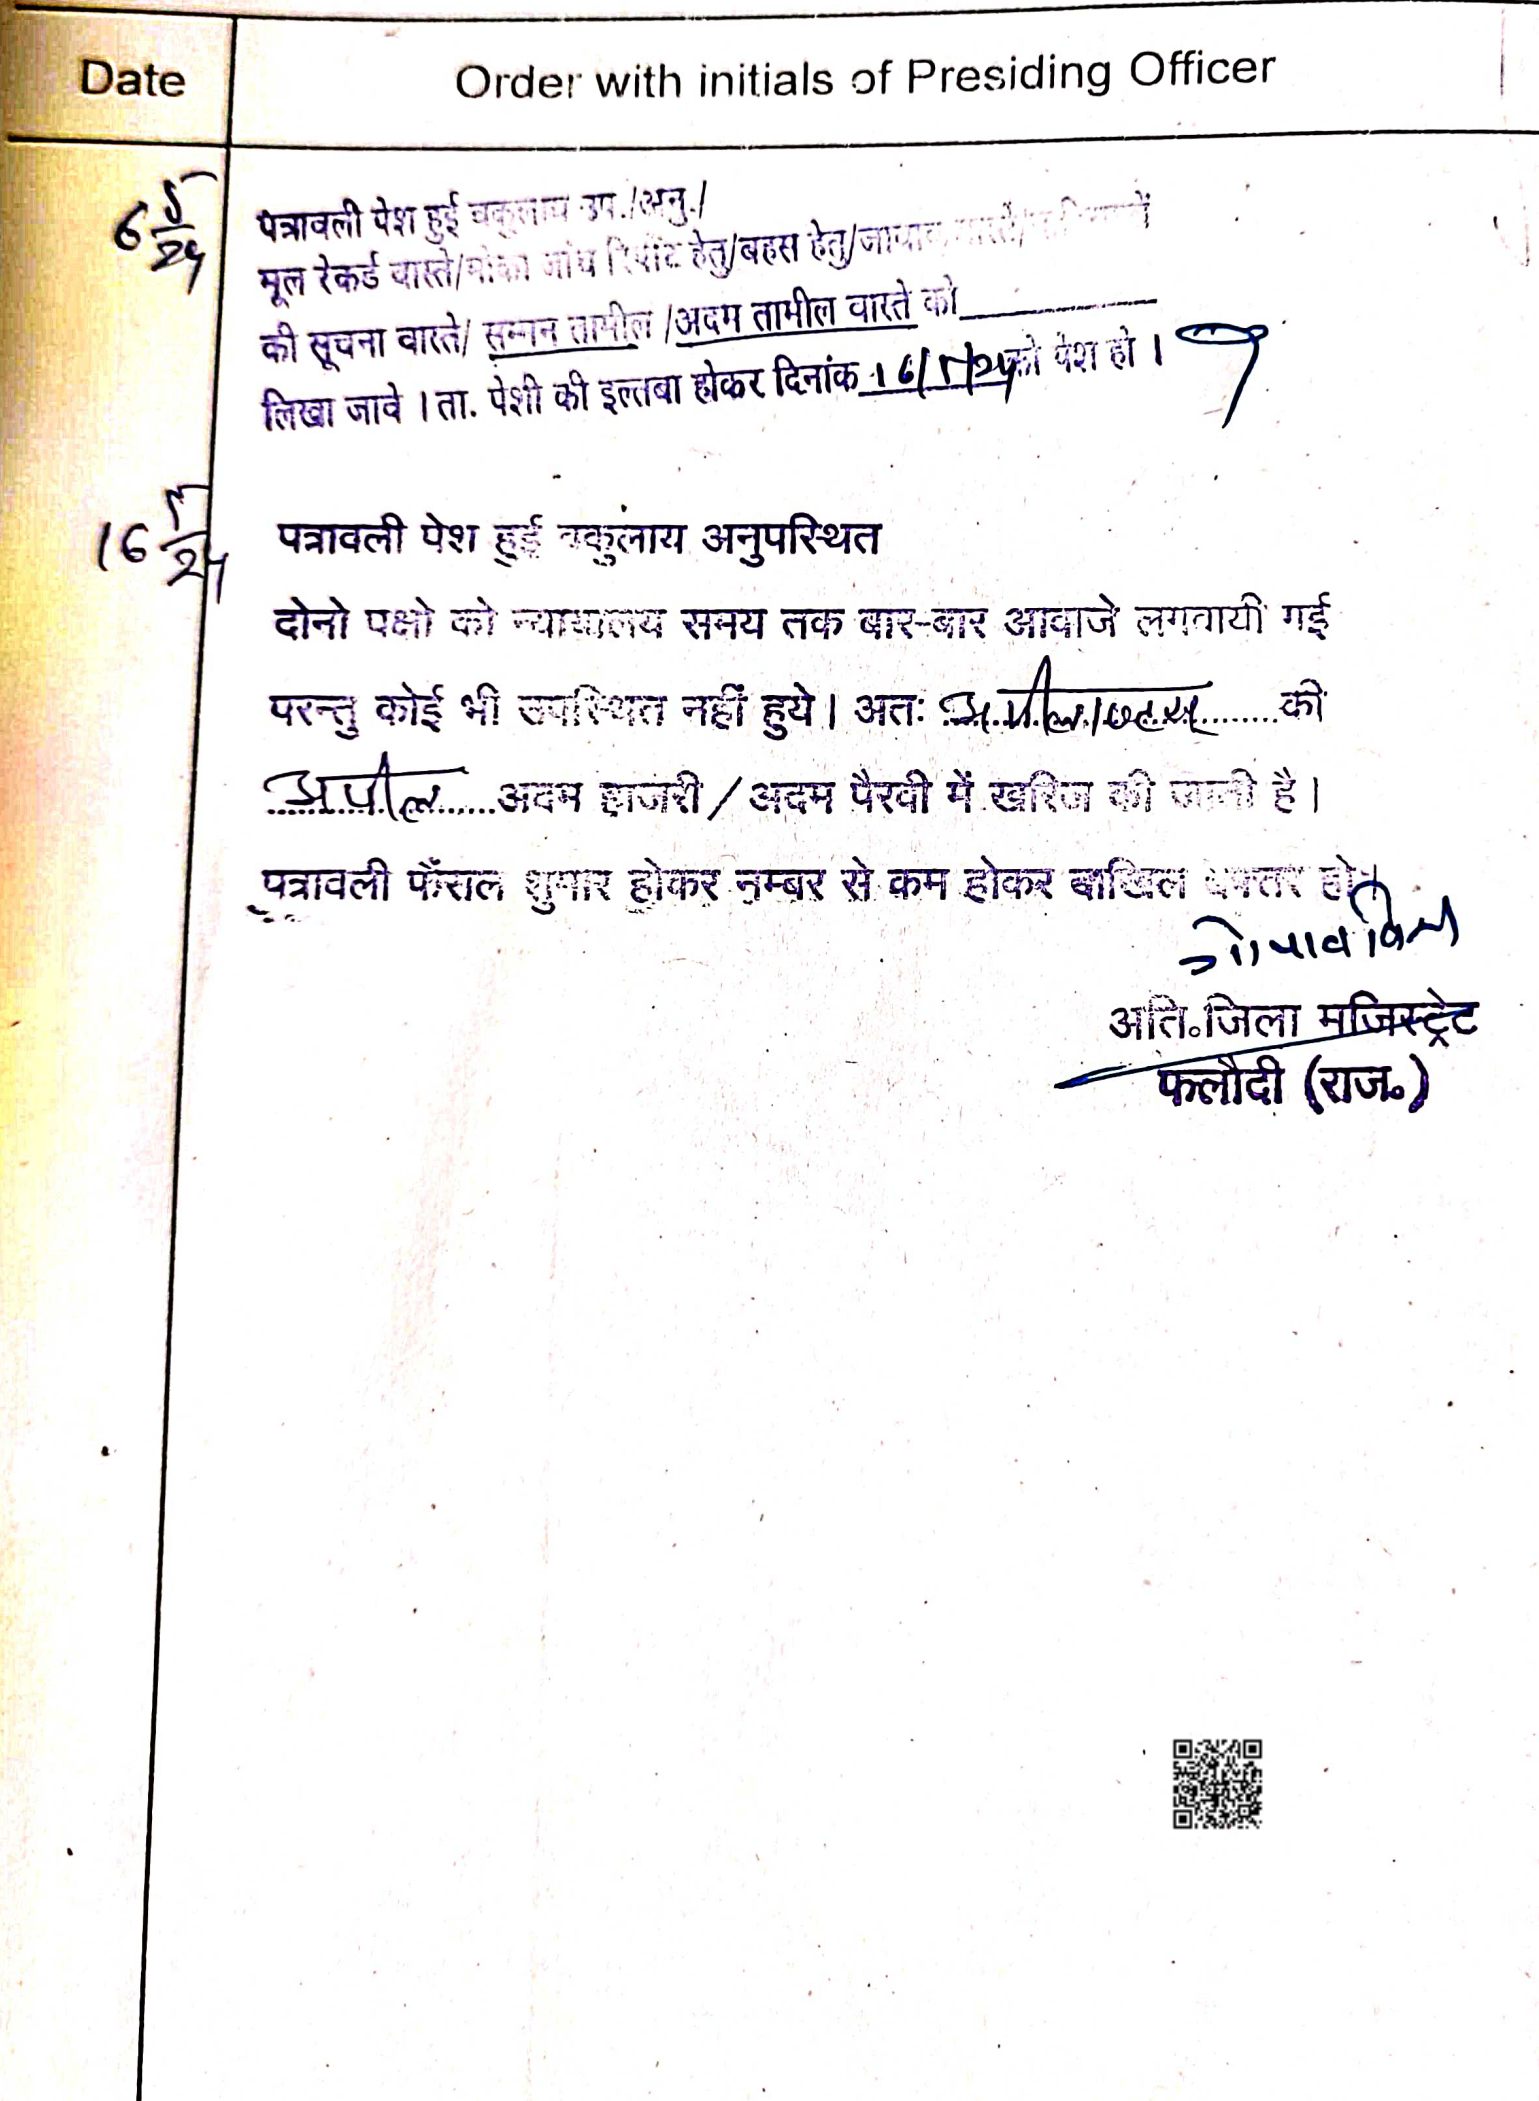 Date
Order with initials of Presiding Officer
6 5/24
पत्रावली पेश हुई वकुलाय उप./अनु./
मूल रेकर्ड वास्ते/मौका जांच रिपोर्ट हेतु/बहस हेतु/
की सूचना वास्ते/ सम्मन तामील /अदम तामील वास्ते को
लिखा जावे । ता. पेशी की इल्तबा होकर दिनांक 16/5/24 को पेश हो ।
16 5/24
पत्रावली पेश हुई वकुलाय अनुपस्थित
दोनो पक्षो को न्यायालय समय तक बार-बार आवाजे लगवायी गई
परन्तु कोई भी उपस्थित नहीं हुये। अतः की
अपील अदम हाजरी / अदम पैरवी में खरिज की जाती है।
पत्रावली फैंसल शुमार होकर नम्बर से कम होकर दाखिल दफ्तर हो।
अति॰जिला मजिस्ट्रेट
फलौदी (राज॰)